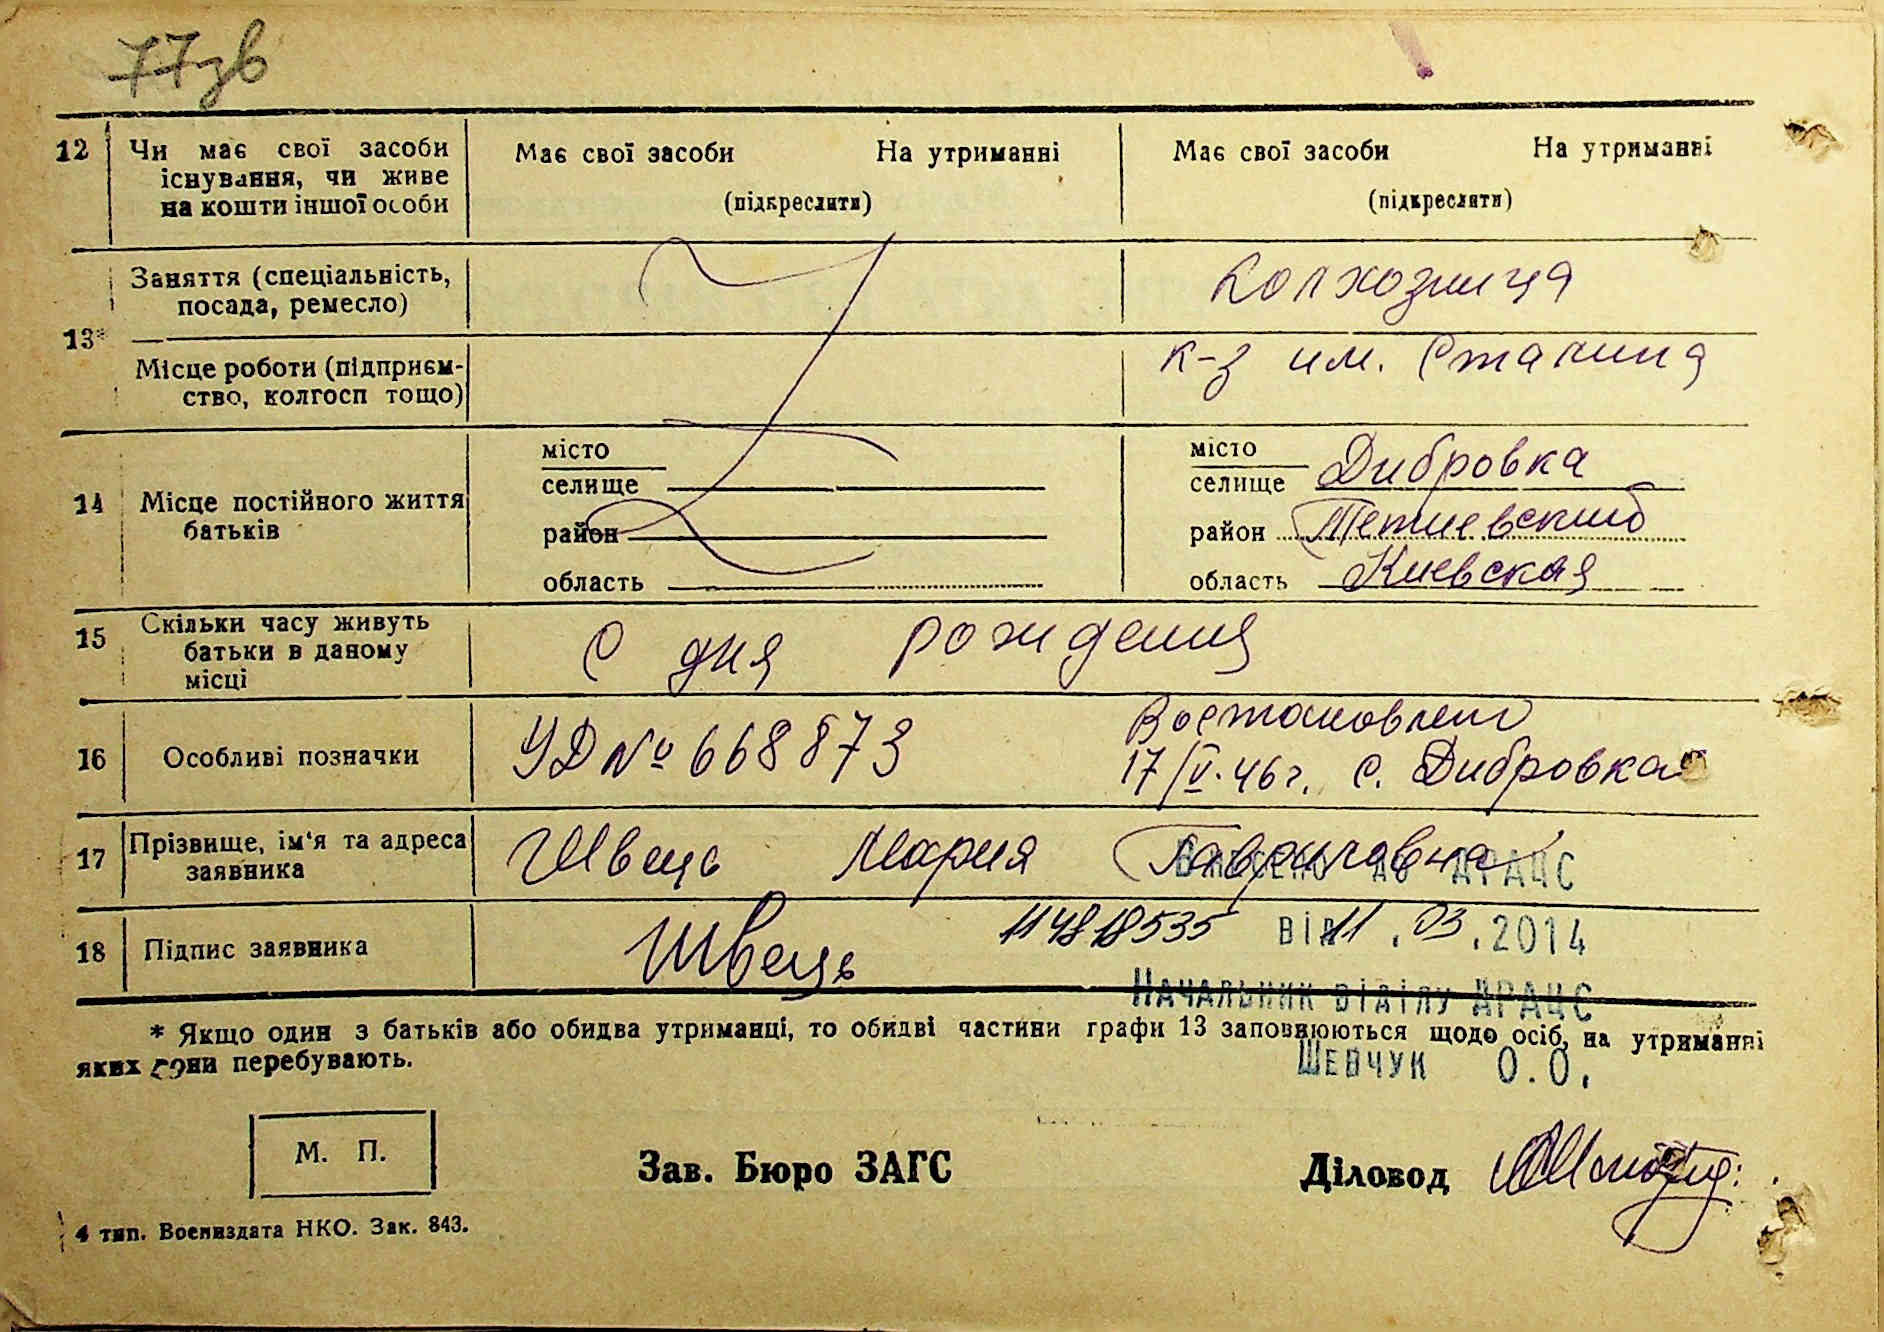 77зв
12 Чи має свої засоби Має свої засоби На утриманні Має свої засоби На утриманні
існування, чи живе
на кошти іншої особи (підкреслити) (підкреслити)
Заняття (спеціальність, колхозница
посада, ремесло)
13*
Місце роботи (підприєм- к-з им. Сталина
ство, колгосп тощо)
місто місто
селище селище Дибровка
14 Місце постійного життя
батьків район район Тетиевский
область область Киевская
15 Скільки часу живуть
батьки в даному С дня рождения
місці
Востановлено
16 Особливі позначки УД № 668873 17/V-46г. с. Дибровка
17 Прізвище, ім'я та адреса Швець Мария Гавриловна
заявника ДРАЦС
18 Підпис заявника Швець від 11.03.2014
Начальник відділу ДРАЦС
* Якщо один з батьків або обидва утриманці, то обидві частини графи 13 заповнюються щодо осіб, на утриманні
яких вони перебувають.
Шевчук О.О.
М. П.
Зав. Бюро ЗАГС Діловод
4 тип. Воениздата НКО. Зак. 843.